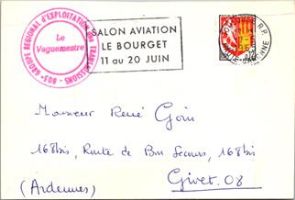 GROUPE REGIONAL D'EXPLOITATION DES TRANSMISSIONS
Le
Vaguemestre
SALON AVIATION
LE BOURGET
11 au 20 JUIN
R.P.
Monsieur René Goin
168bis, Route de Bon Secours, 168bis
(Ardennes) Givet. 08